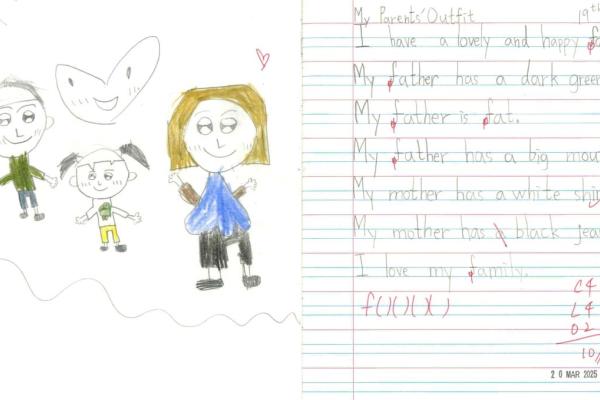 My Parents' Outfit 19th
I have a lovely and happy fa
My father has a dark green
My father is fat.
My father has a big mou
My mother has a white shir
My mother has a black jea
I love my family.
f( )( )( )( )
C4
L4
O2
10/
20 MAR 2025